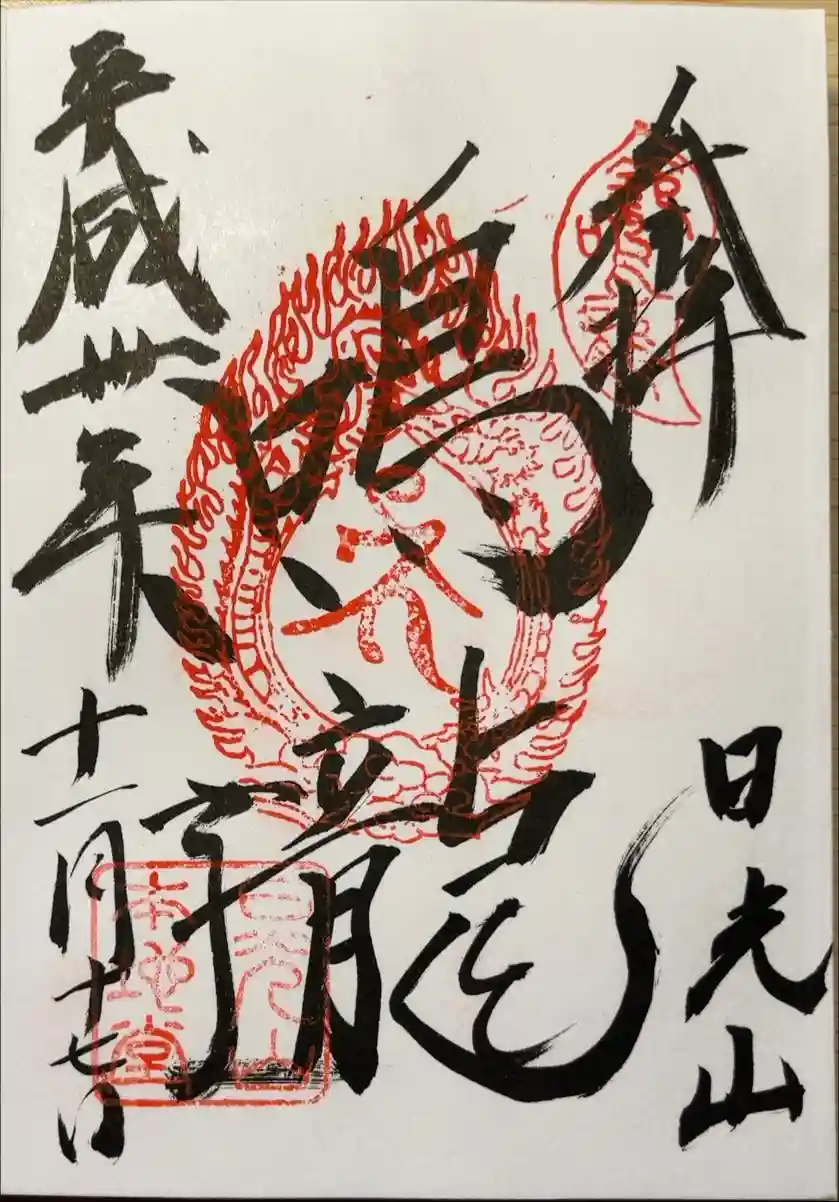 奉拝
日光山
鳴龍
平成卅年十一月十七日
日光山
本地堂